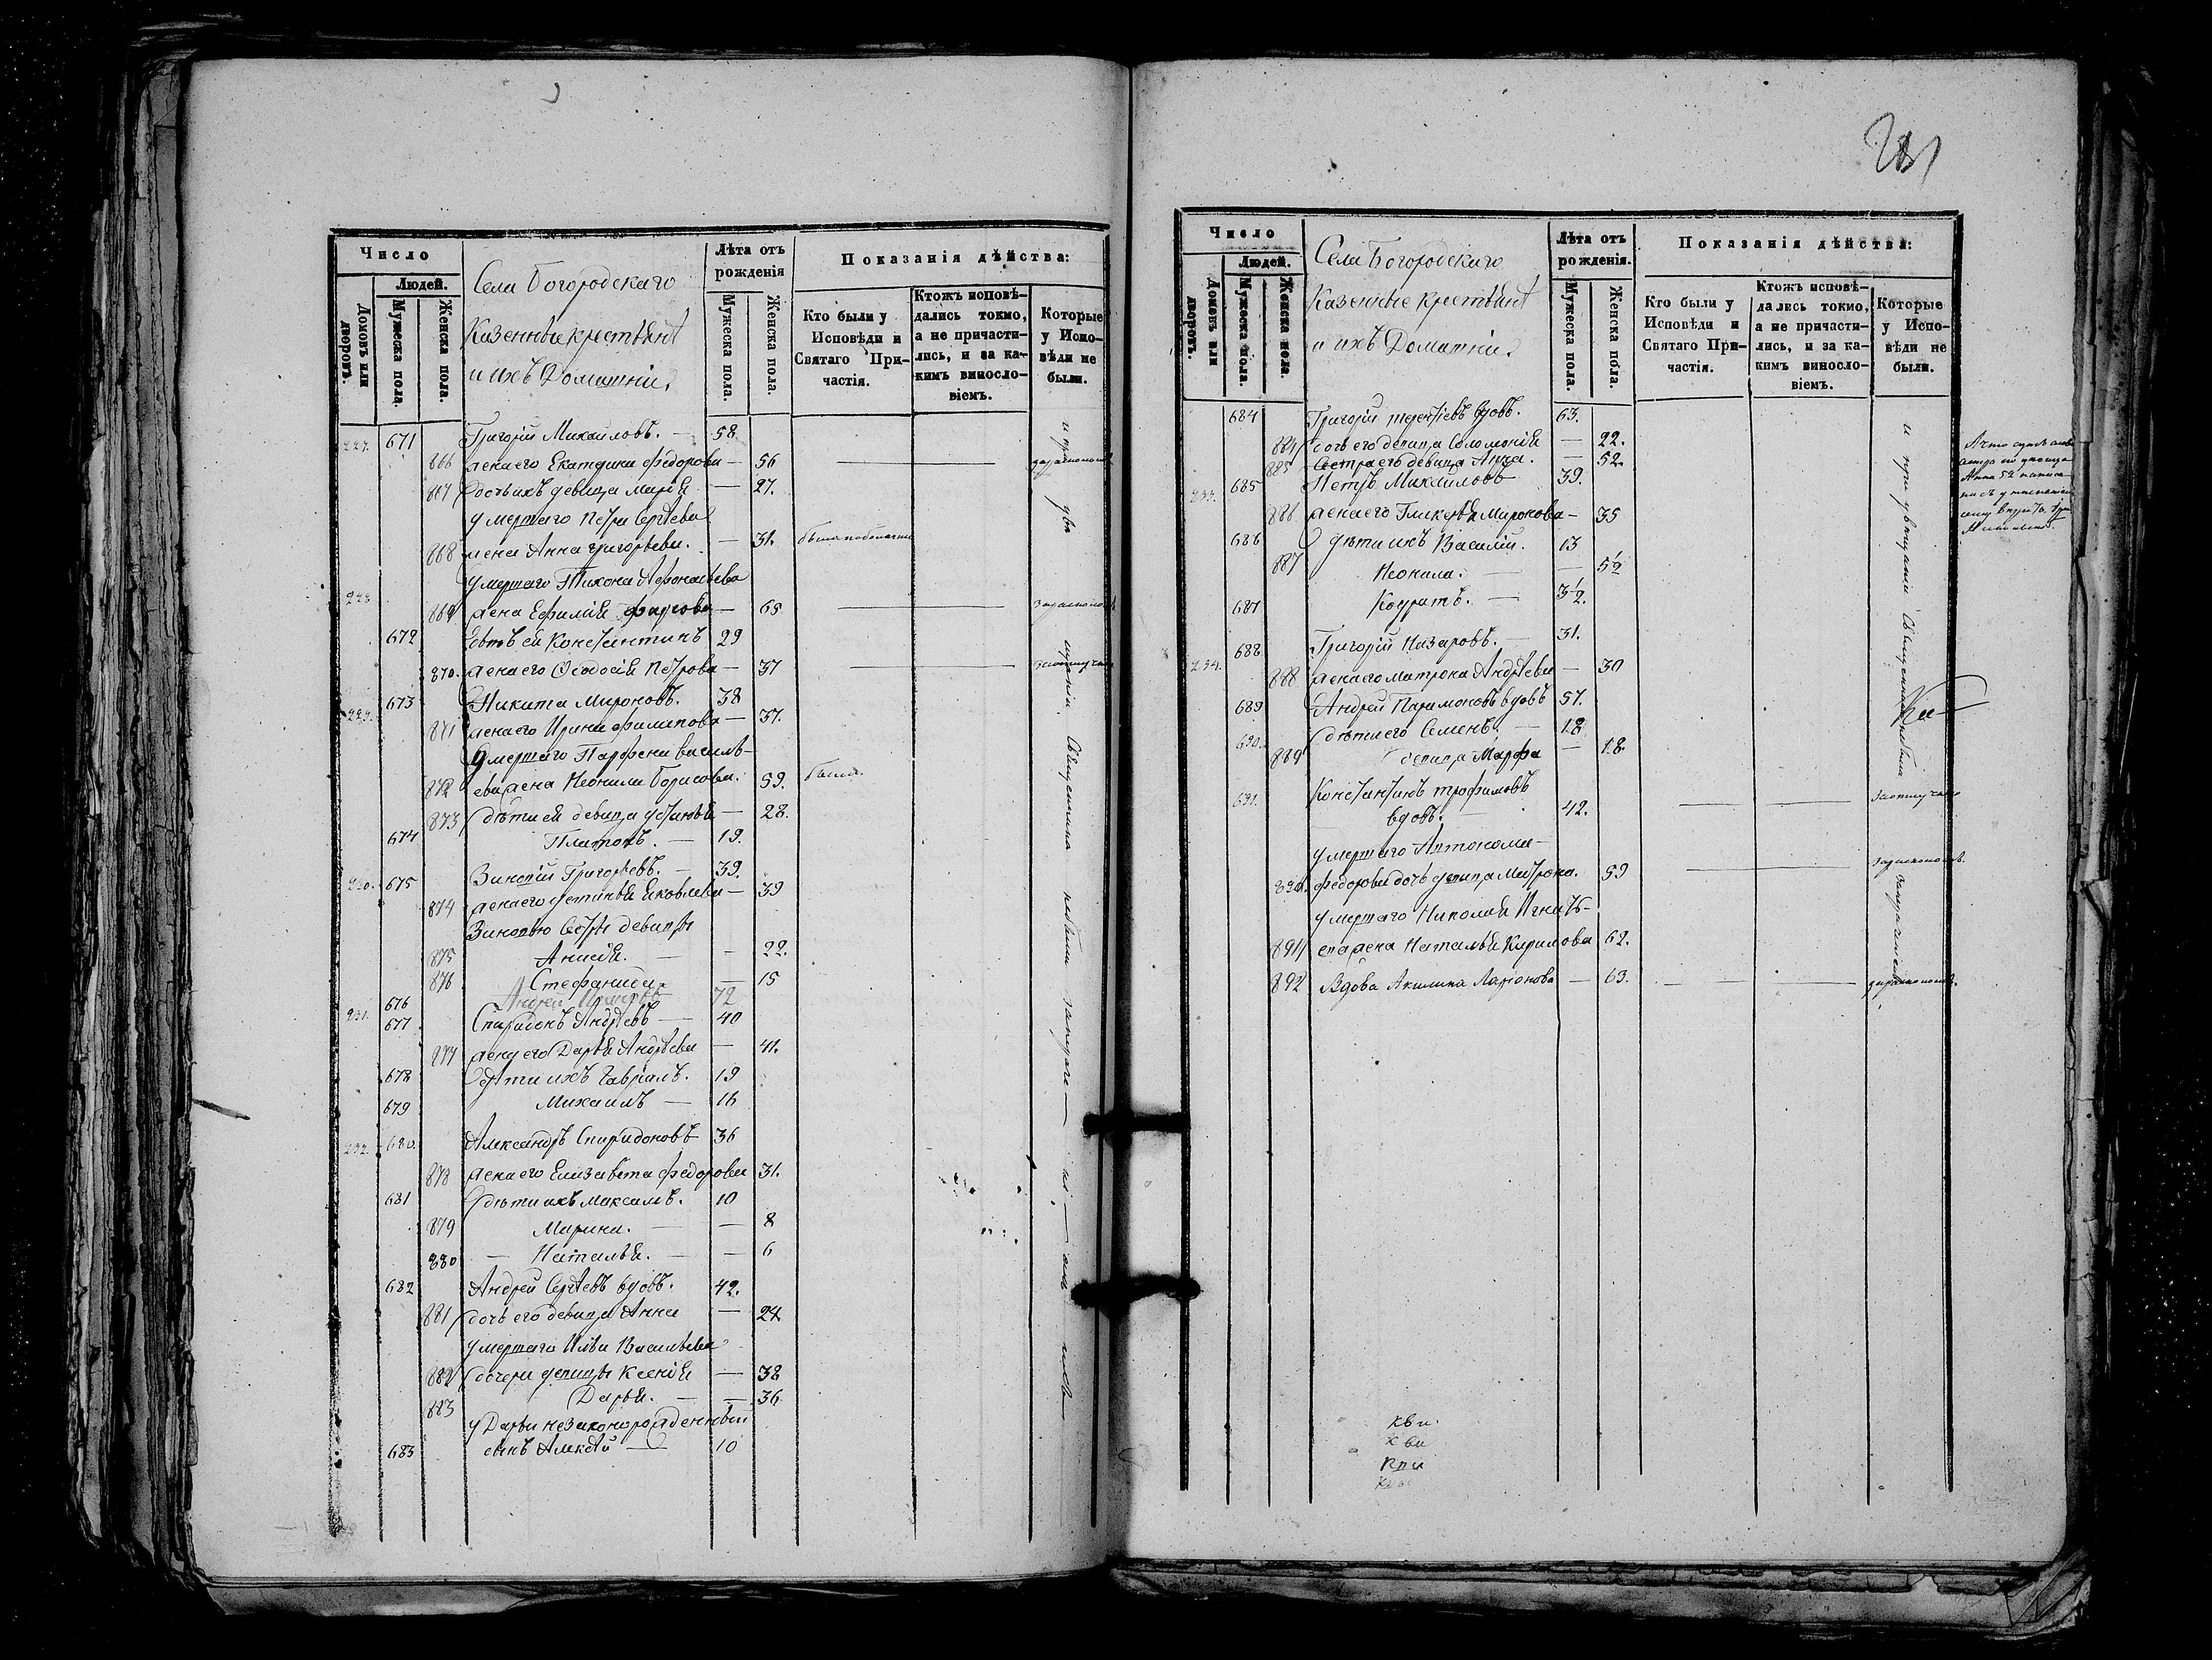 Число
Людей.
Домовъ или дворовъ.
Мужеска пола.
Женска пола.
Села Богородскаго
Казенные крестьяне
и ихъ Домашніе.
Лѣта отъ рожденія
Мужеска пола.
Женска пола.
Показанія дѣйства:
Кто были у Исповѣди и Святаго Причастія.
Ктожъ исповѣдались токмо, а не причастились, и за какимъ винословіемъ.
Которые у Исповѣди не были.
227. 671 Григорій Михайловъ. — 58
866 жена его Екатерина Федорова — 56
867 дочь ихъ девица Марія — 27.
умершаго Петра Сергѣева
868 жена Анна Григорьева. — 31.
умершаго Тихона Афонасьева
228. 869 жена Ефимія — 65
672 Сынъ ей Константинъ 29
870. жена его Ѳеодосія Петрова — 37
229. 673 Никита Мироновъ. 38
871 жена его Ирина Филипова — 37.
умершаго Парфена Василь-
872 ева жена Неонила Борисова. 59. была.
873 дѣти ей девица Устинья — 28.
674 Платонъ. — 19.
230. 675 Зиновій Григорьевъ. — 39.
874 жена его Устинья Яковлева — 39
Зиновію Сестры девицы
875 Анисія. — — 22.
876 Стефанида — 15
231. 676 Андрей 72
677 Спиридонъ Андреевъ — 40
877 жена его Дарья Андреева — 41.
678 Дѣти ихъ Гавріилъ. 19
679 Михаилъ — 16
232. 680. Александръ Спиридоновъ 36
878 жена его Елизавета Федорова 31.
681 Дѣти ихъ Максимъ. 10
879 Марина. — — 8
880 — Наталья. — — 6
682 Андрей Сергѣевъ вдовъ. 42.
881 дочь его девица Анна — 24
умершаго Ильи Васильева
882 дочери девицы Ксенія — 38
883 Дарья. — — 36
у Дарьи незаконорожденный
683 сынъ Алексѣй — 10
Число
Людей.
Домовъ или дворовъ.
Мужеска пола.
Женска пола.
Села Богородскаго
Казенные крестьяне
и ихъ Домашніе.
Лѣта отъ рожденія.
Мужеска пола.
Женска пола.
Показанія дѣйства:
Кто были у Исповѣди и Святаго Причастія.
Ктожъ исповѣдались токмо, а не причастились, и за какимъ винословіемъ.
Которые у Исповѣди не были.
684 Григорій Терентіевъ вдовъ. 63.
884 дочь его девица Соломонія — 22.
885 Сестра его девица Анна. — 52.
233. 685 Петръ Михайловъ 39.
886 жена его Гликерія Миронова — 35
686 Дѣти ихъ Василій. 13
887 Неонила. — — 5½
687 Кодратъ. — 3½.
234. 688 Григорій Назаровъ. — 31.
888 жена его Матрона Андреева — 30
689 Андрей Парамоновъ вдовъ 57.
690. дѣти его Семенъ. — 18
889 девица Марфа — 18
691. Константинъ Трофимовъ
вдовъ. — 42.
умершаго Антонома
890. Федорова дочь девица Матрона. 59
умершаго Николая Игнать-
891 ева жена Наталья Карпова 62.
892 Вдова Акилина Ларіонова — 63.